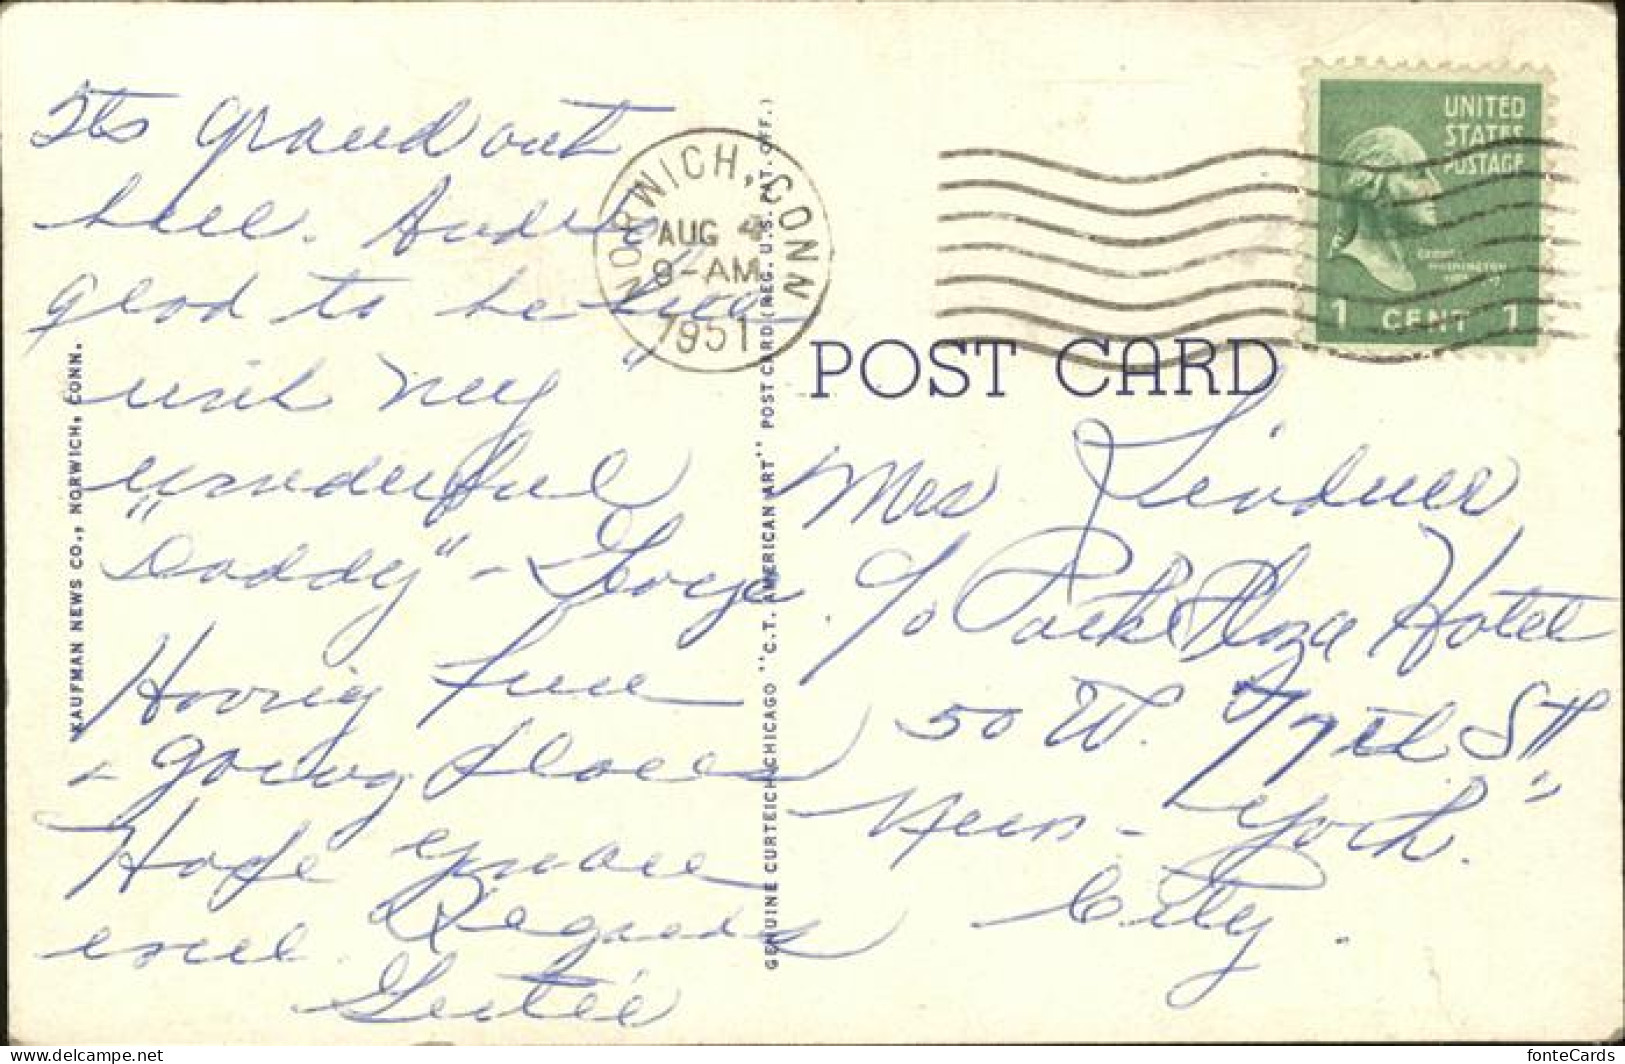 Its grand out
here. And so
glad to be here
with my
wonderful
"Daddy" - George
Having fun
- going places
Hope you are
well. Regards
Gertie
KAUFMAN NEWS CO., NORWICH, CONN.
GENUINE CURTEICH-CHICAGO "C.T. AMERICAN ART" POST CARD (REG. U.S. PAT. OFF.)
NORWICH, CONN
AUG 4
9-AM
1951
UNITED
STATES
POSTAGE
GEORGE
WASHINGTON
1 CENT 1
POST CARD
Mrs Lindner
c/o Park Plaza Hotel
50 W. 77th St
New - York
City.
fonteCards